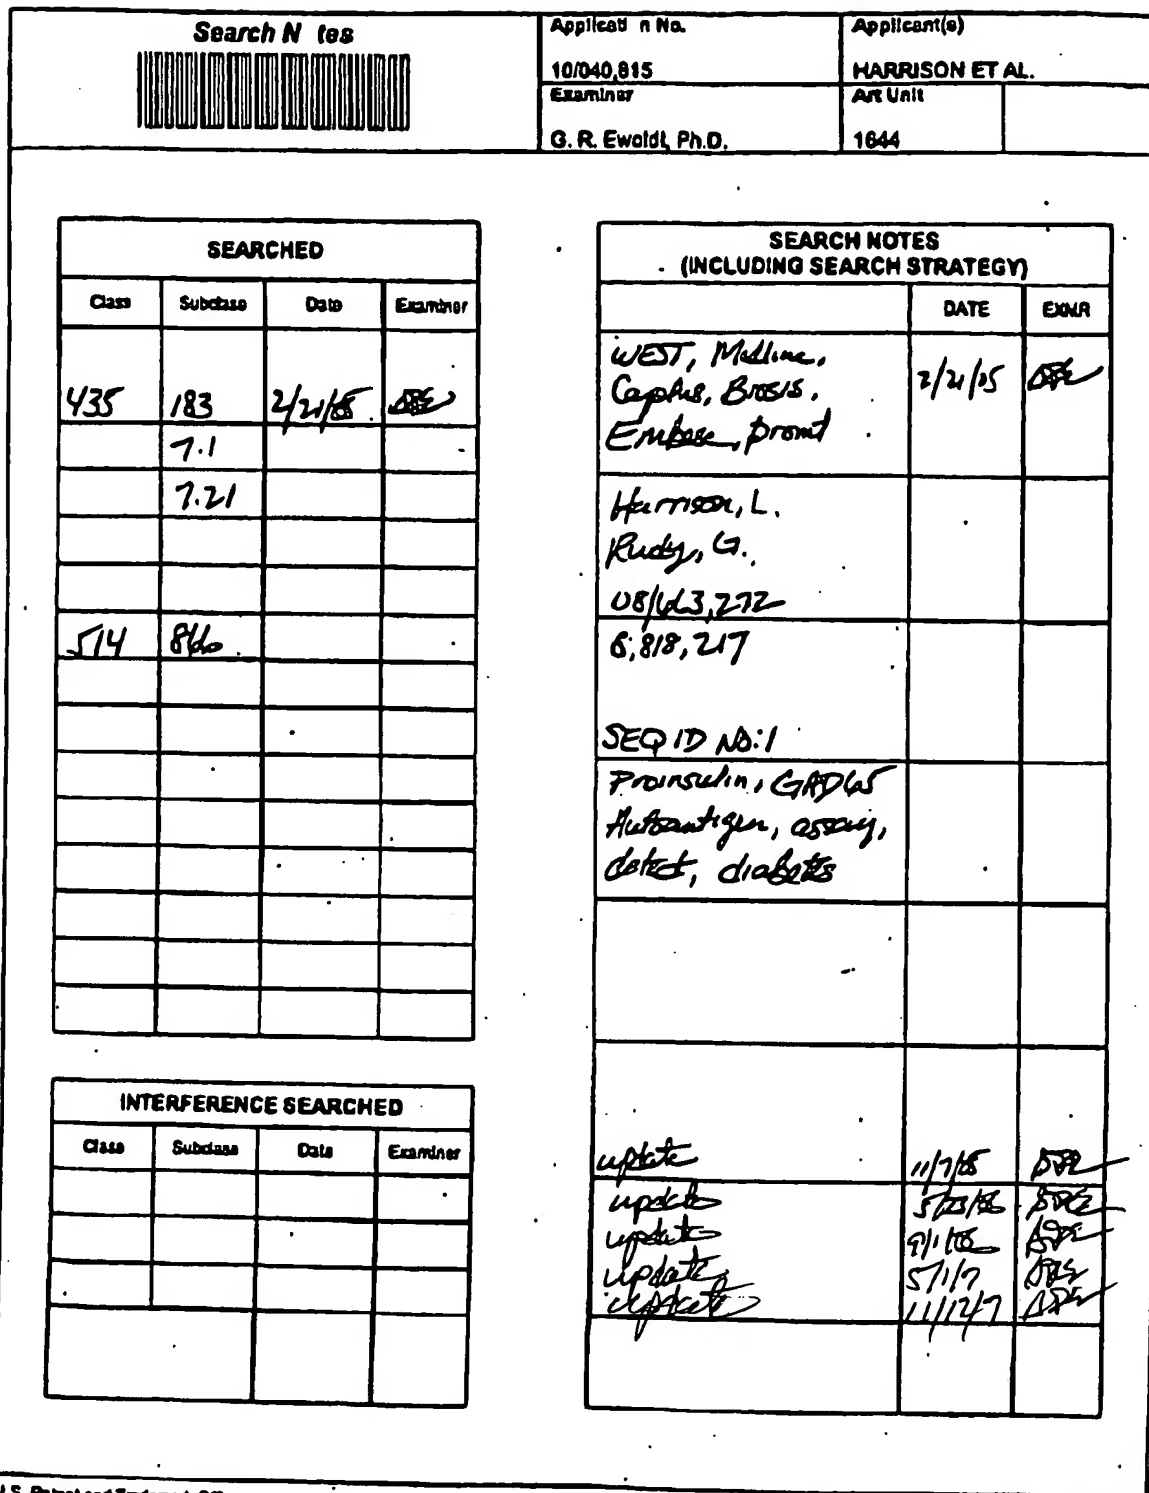 Search N tes
Applicati n No.
10/040,815
Applicant(s)
HARRISON ET AL.
Examiner
G. R. Ewoldt, Ph.D.
Art Unit
1644
SEARCHED
Class Subclass Date Examiner
435 183 2/21/05
7.1
7.21
514 866
INTERFERENCE SEARCHED
Class Subclass Date Examiner
SEARCH NOTES
(INCLUDING SEARCH STRATEGY)
DATE EXMR
WEST, Medline, 2/21/05
Caplus, Biosis,
Embase, promt
Harrison, L.
Rudy, G.
08/663,272
5,818,217
SEQ ID NO:1
Proinsulin, GAD65
Autoantigen, assay,
detect, diabetes
update 11/7/05
update 5/23/06
update 9/1/06
update 5/1/7
update 11/12/7